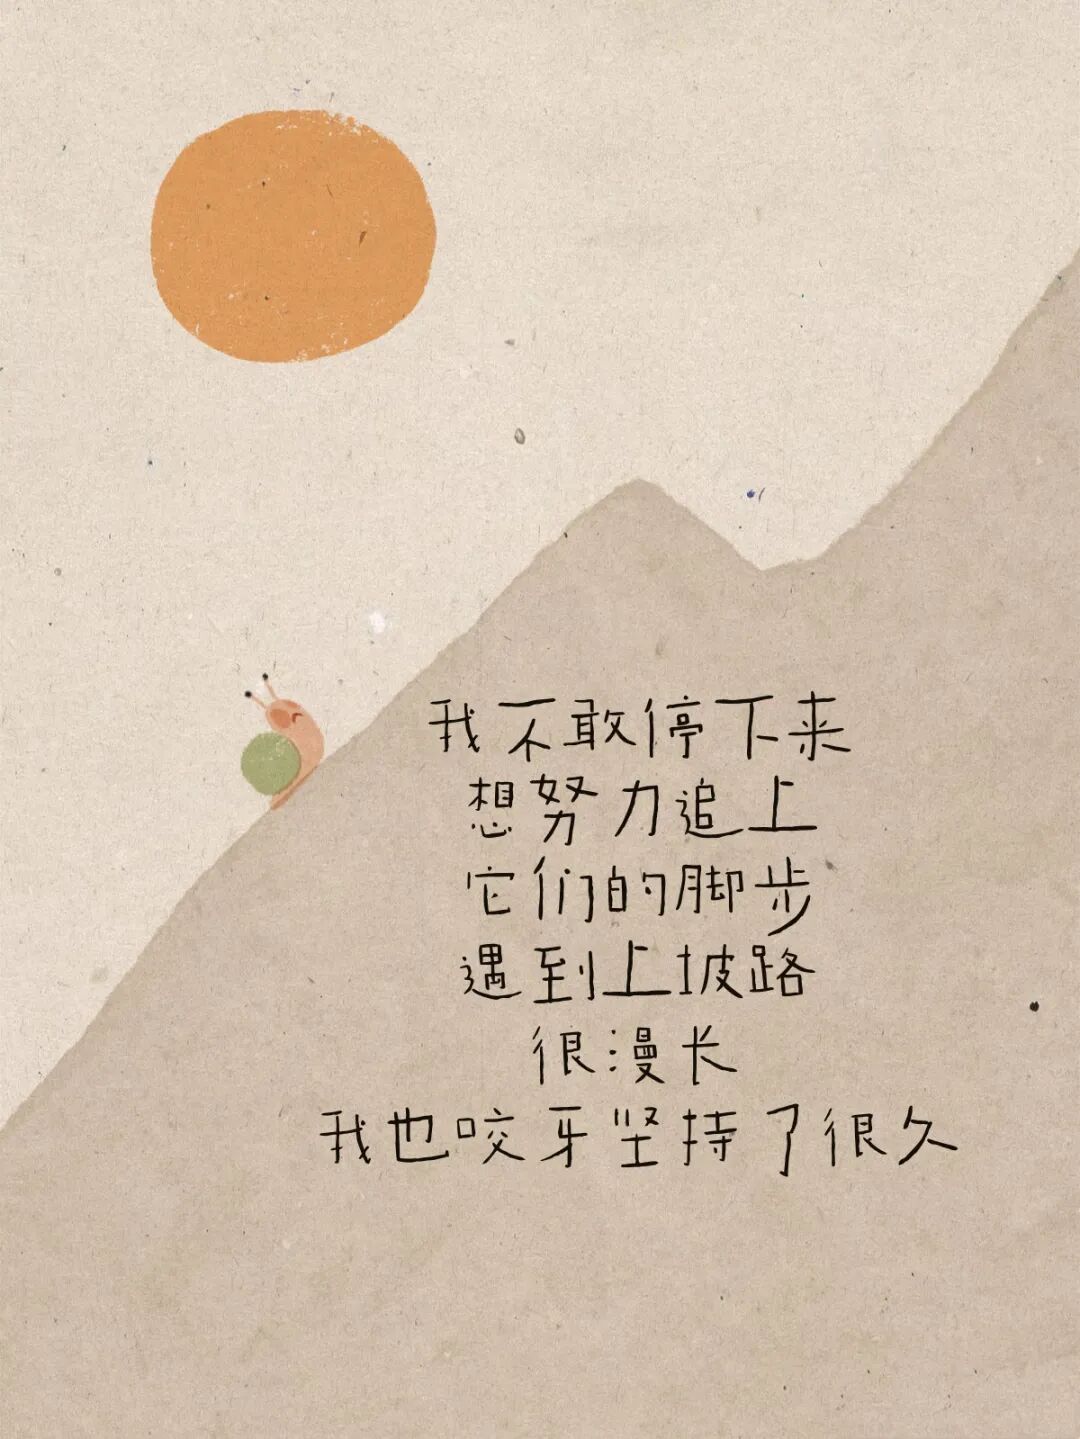 我不敢停下来
想努力追上
它们的脚步
遇到上坡路
很漫长
我也咬牙坚持了很久